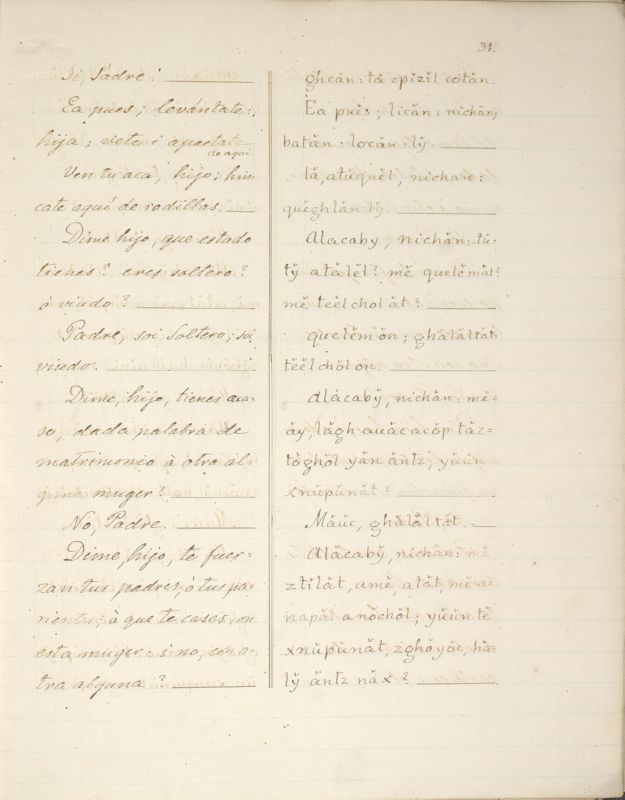 31.
Si, Padre.
Ea pues; levántate;
hija; vete i apartate
de aquí.
Ven tu acá, hijo; hin-
cate aquí de rodillas.
Dime hijo, que estado
tienes? eres soltero?
ó viudo?
Padre, soi soltero; soi
viudo.
Dime, hijo, tienes aca-
so, dada palabra de
matrimonio à otra al-
guna muger?
No, Padre.
Dime, hijo, te fuer-
zan tus padres, ó tus pa-
rientes, à que te cases con
esta muger: i no, con o-
tra alguna?
ghcăn: tă zpĭzĭl cotăn.
Ea puĕs; licăn: nichăn;
batăn: locăn: lỹ.
lă, atuquĕl, nichan:
quĕghlăn lỹ.
Alacaby, nichăn: tŭ-
tỹ atălĕl? mĕ quelĕmăt?
mĕ teĕl chol ăt?
quelĕm ŏn; ghălăltăt:
tĕĕl chŏl on.
Alăcabỹ, nichăn: mĕ-
ăy, lăgh auăc acŏp tăz=
tŏghŏl yăn ăntz, yŭŭn
xnŭpŭnăt?
Măŭc, ghălăltăt.
Alăcabỹ, nichăn: mĕ
ztĭlăt, amĕ, atăt, mĕ a=
napăl anŏchŏl; yŭŭn tĕ
xnŭpŭnăt, zghŏyŏc, hă-
lỹ ăntz năx?